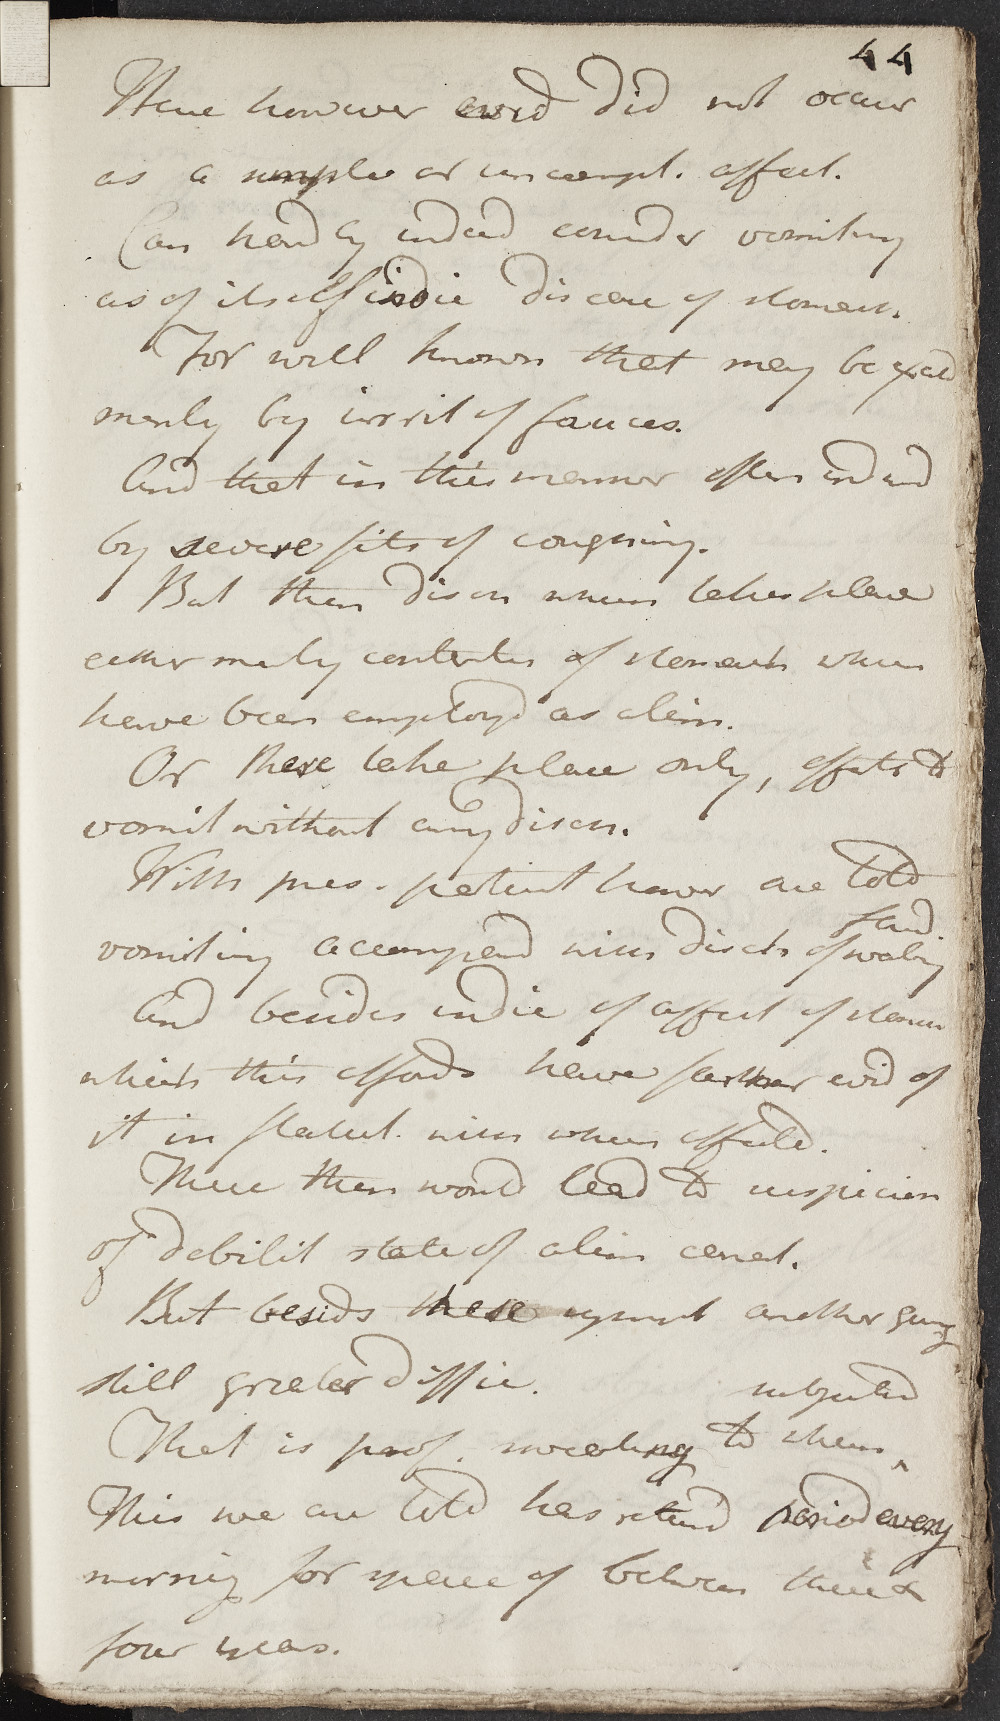 44
Here however evid did not occur
as a simple or uncompl. affect.
Can hardly indeed consider vomiting
as of itself indic disease of stomach.
For well known that may be excited
merely by irrit of fauces.
And that in this manner often induced
by severe fits of coughing.
But then disch when takes place
either merely contents of stomach when
have been employd as alim.
Or there take place only, efforts to
vomit without any disch.
With pres. patient howr are told
vomiting accompand with disch of watery
fluid.
And besides indic of affect of stomach
which this affords have farther evid of
it in flatul. with when affectd.
These then would lead to suspicion
of debilit state of alim canal.
But besids these sympt another giving
still greater diffic.
That is prof. sweating to whem subjected
This we are told has returnd period every
morning for space of between three &
four years.